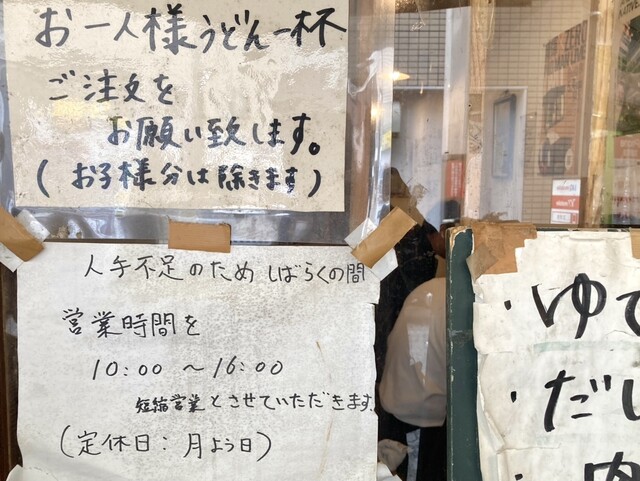 お一人様うどん一杯
ご注文を
お願い致します。
(お子様分は除きます)
人手不足のためしばらくの間
営業時間を
10:00 ～ 16:00
短縮営業とさせていただきます
(定休日:月よう日)
・ゆで
・だし
・肉